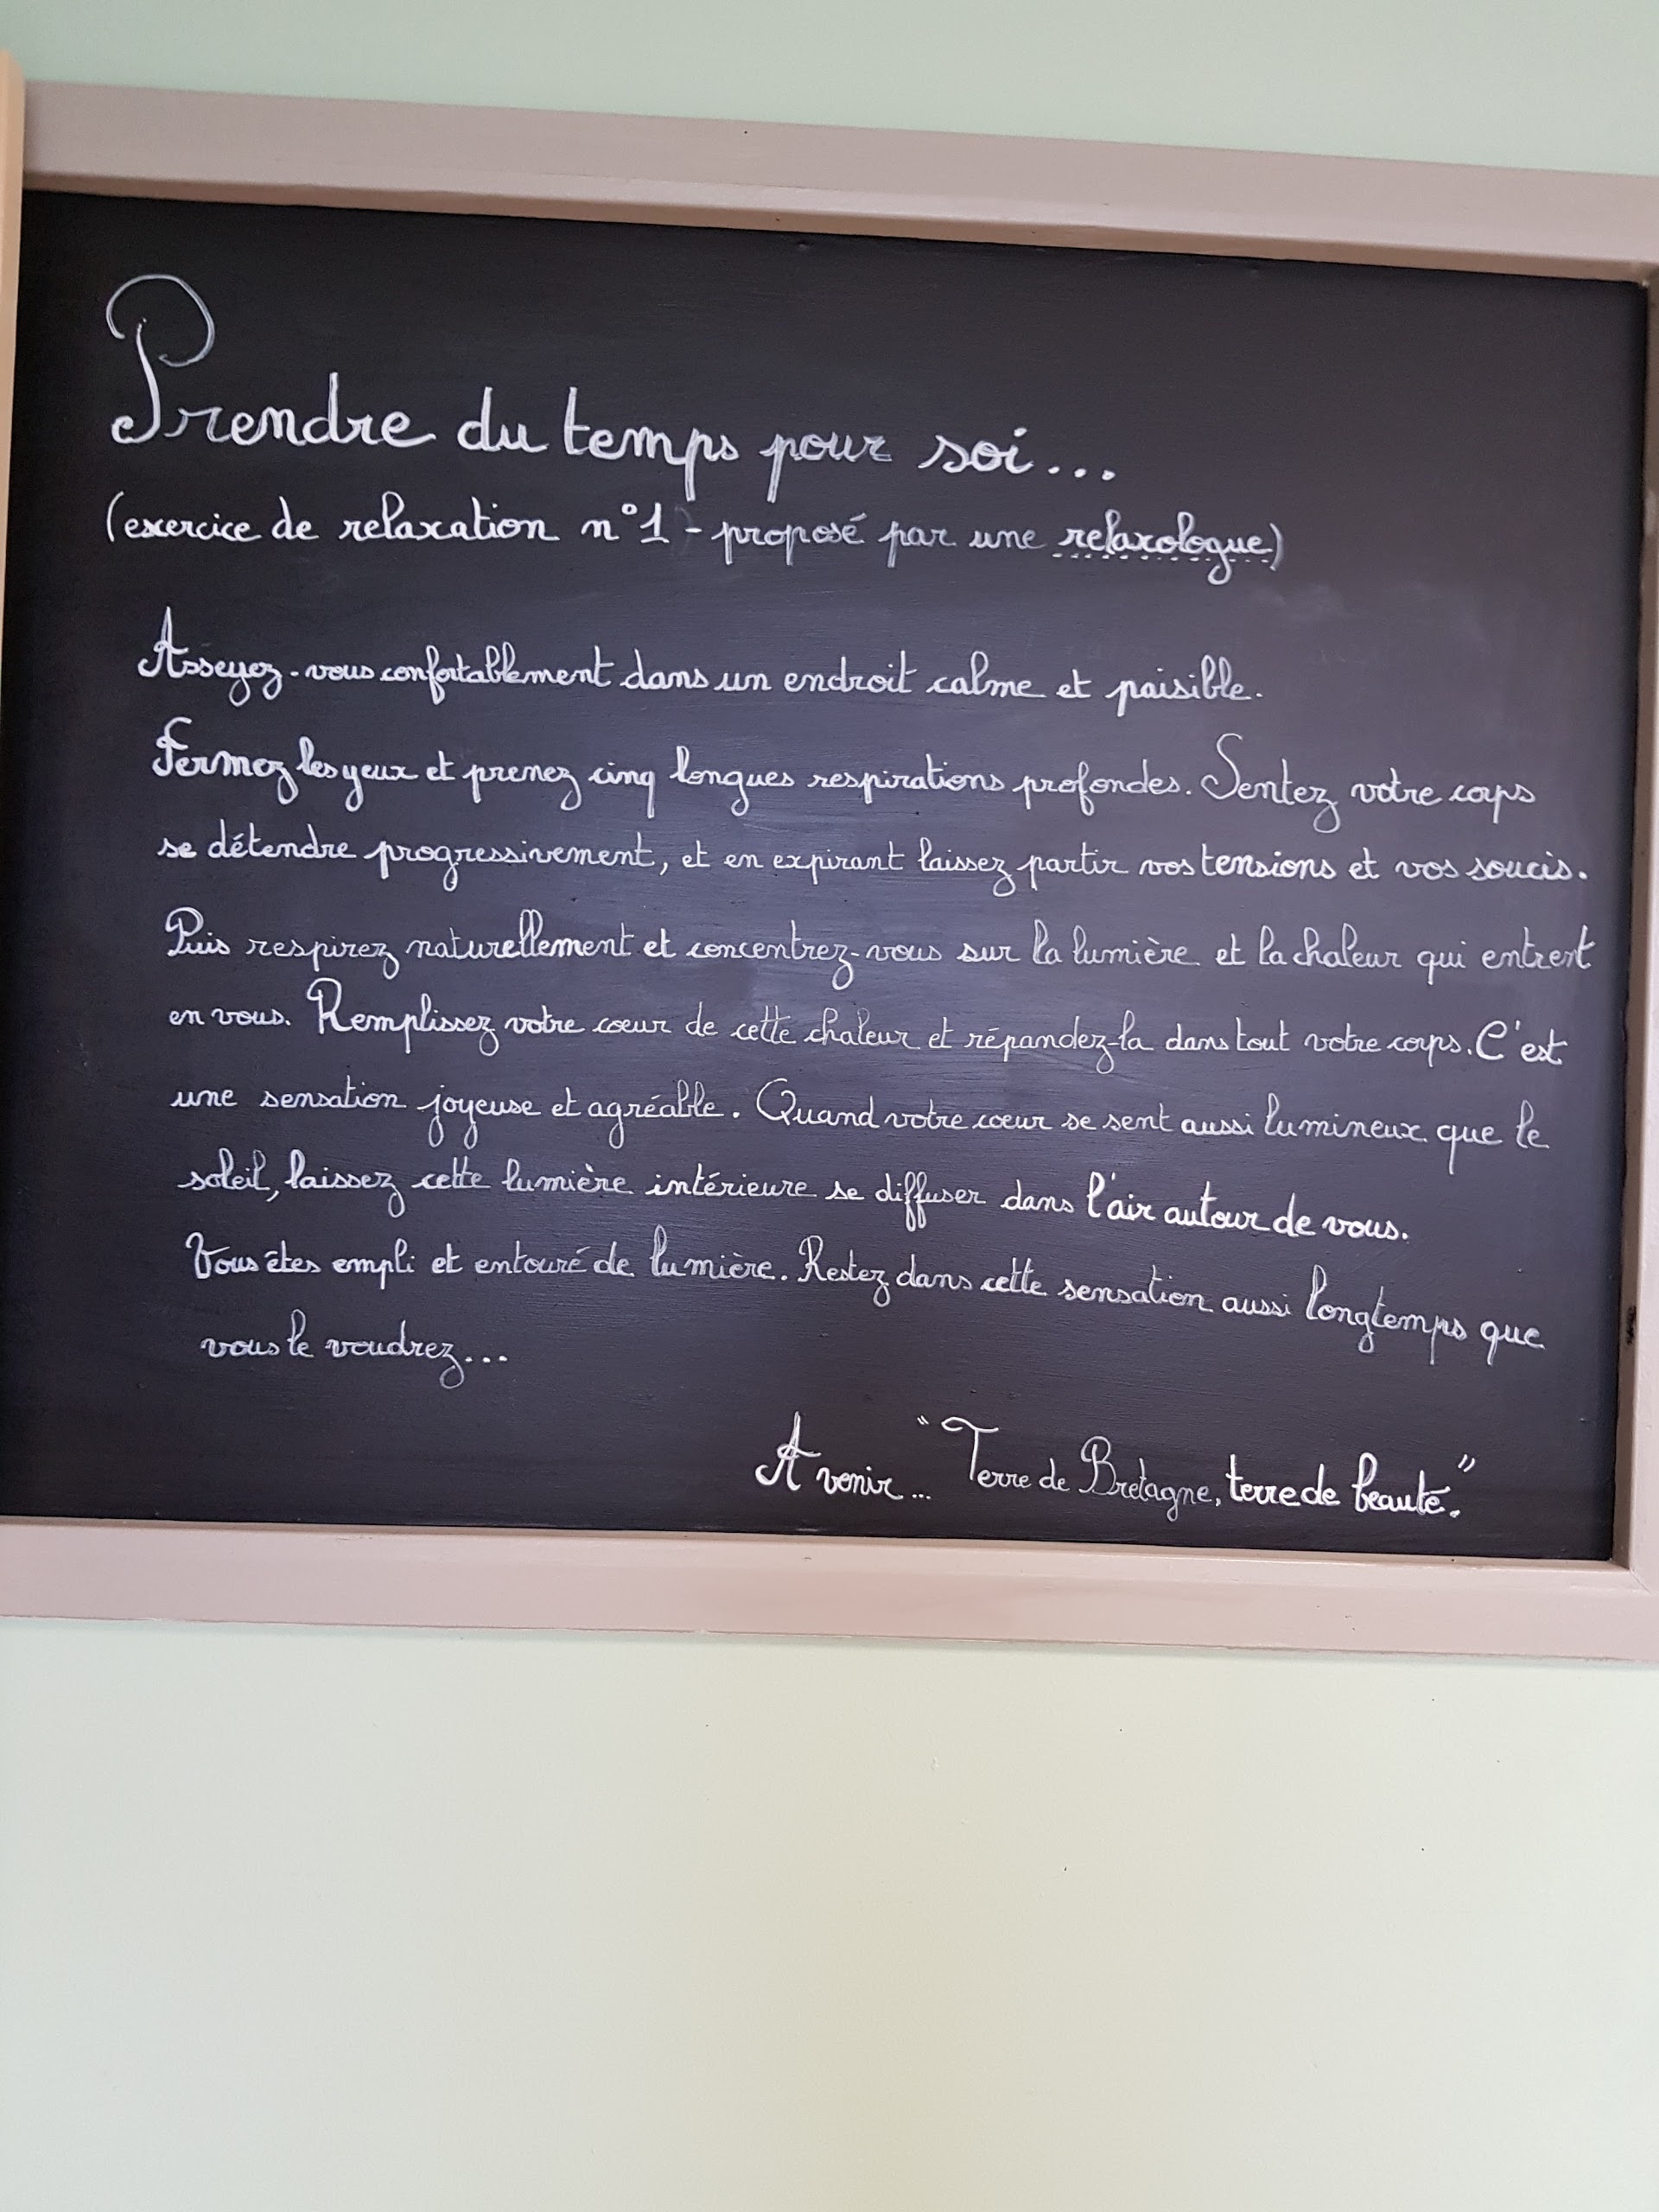 Prendre du temps pour soi...
(exercice de relaxation n°1 - proposé par une relaxologue)
Asseyez-vous confortablement dans un endroit calme et paisible.
Fermez les yeux et prenez cinq longues respirations profondes. Sentez votre corps
se détendre progressivement, et en expirant laissez partir vos tensions et vos soucis.
Puis respirez naturellement et concentrez-vous sur la lumière et la chaleur qui entrent
en vous. Remplissez votre coeur de cette chaleur et répandez-la dans tout votre corps. C'est
une sensation joyeuse et agréable. Quand votre coeur se sent aussi lumineux que le
soleil, laissez cette lumière intérieure se diffuser dans l'air autour de vous.
Vous êtes empli et entouré de lumière. Restez dans cette sensation aussi longtemps que
vous le voudrez...
A venir... "Terre de Bretagne, terre de beauté."